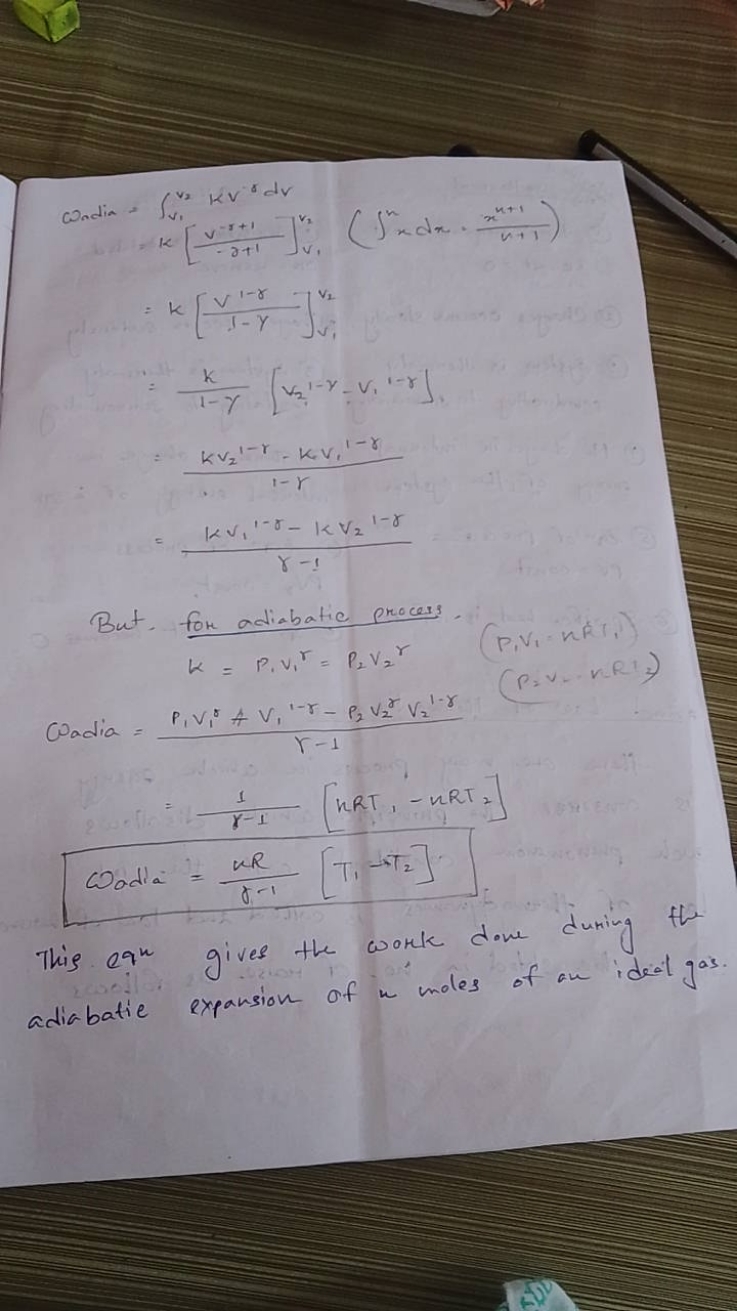 Wadia = ∫_{V₁}^{V₂} KV^{-γ} dv
= K [V^{-γ+1} / -γ+1]_{V₁}^{V₂} (∫xⁿ dx = x^{n+1} / n+1)
= K [V^{1-γ} / 1-γ]_{V₁}^{V₂}
= K / 1-γ [V₂^{1-γ} - V₁^{1-γ}]
= KV₂^{1-γ} - KV₁^{1-γ} / 1-γ
= KV₁^{1-γ} - KV₂^{1-γ} / γ-1
But for adiabatic process.
K = P₁V₁^γ = P₂V₂^γ (P₁V₁ = nRT₁)
(P₂V₂ = nRT₂)
Wadia = P₁V₁^γ V₁^{1-γ} - P₂V₂^γ V₂^{1-γ} / γ-1
= 1 / γ-1 [nRT₁ - nRT₂]
Wadia = nR / γ-1 [T₁ - T₂]
This eqn gives the work done during the
adiabatic expansion of n moles of an ideal gas.